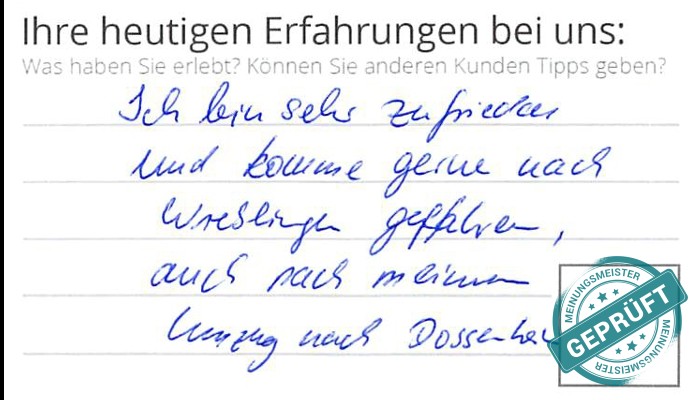 Ihre heutigen Erfahrungen bei uns:
Was haben Sie erlebt? Können Sie anderen Kunden Tipps geben?
Ich bin sehr zufrieden
und komme gerne nach
gefahren,
auch nach meinem
Umzug nach
MEINUNGSMEISTER
GEPRÜFT
MEINUNGSMEISTER